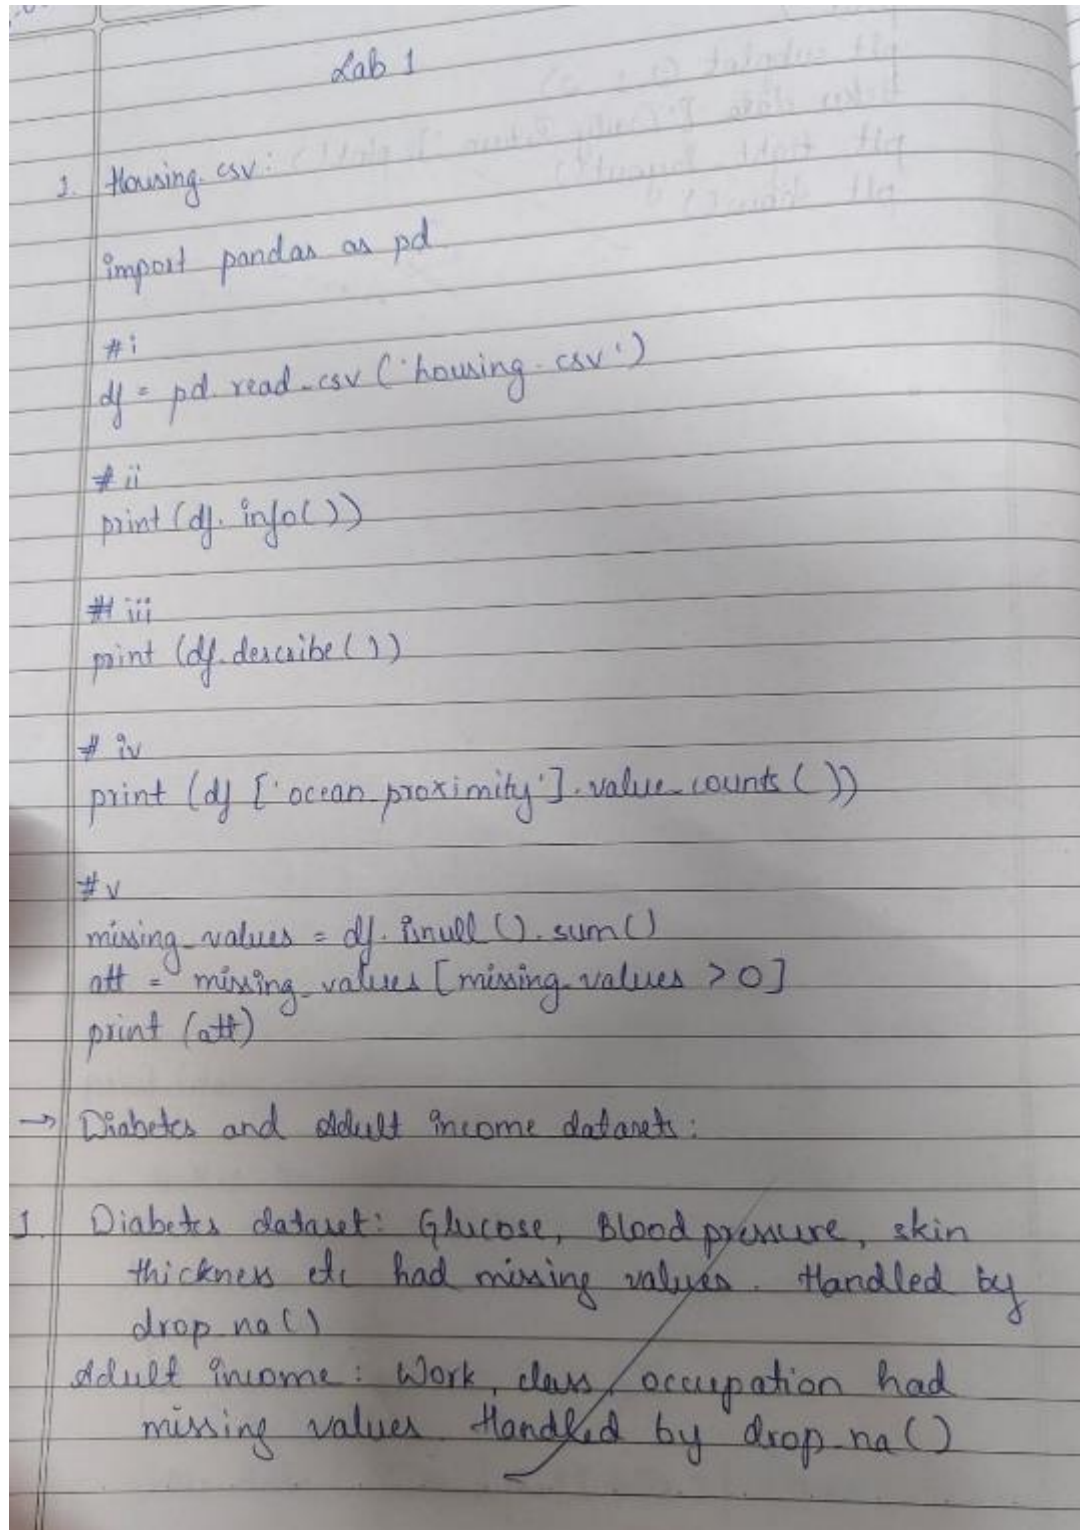 Lab 1
1. Housing.csv:
import pandas as pd
#i
df = pd.read_csv('housing.csv')
#ii
print(df.info())
#iii
print(df.describe())
#iv
print(df['ocean_proximity'].value_counts())
#v
missing_values = df.isnull().sum()
att = missing_values[missing_values > 0]
print(att)
→ Diabetes and Adult income datasets:
1. Diabetes dataset: Glucose, Blood pressure, skin
thickness etc had missing values. Handled by
drop_na()
Adult income: Work, class, occupation had
missing values. Handled by drop_na()